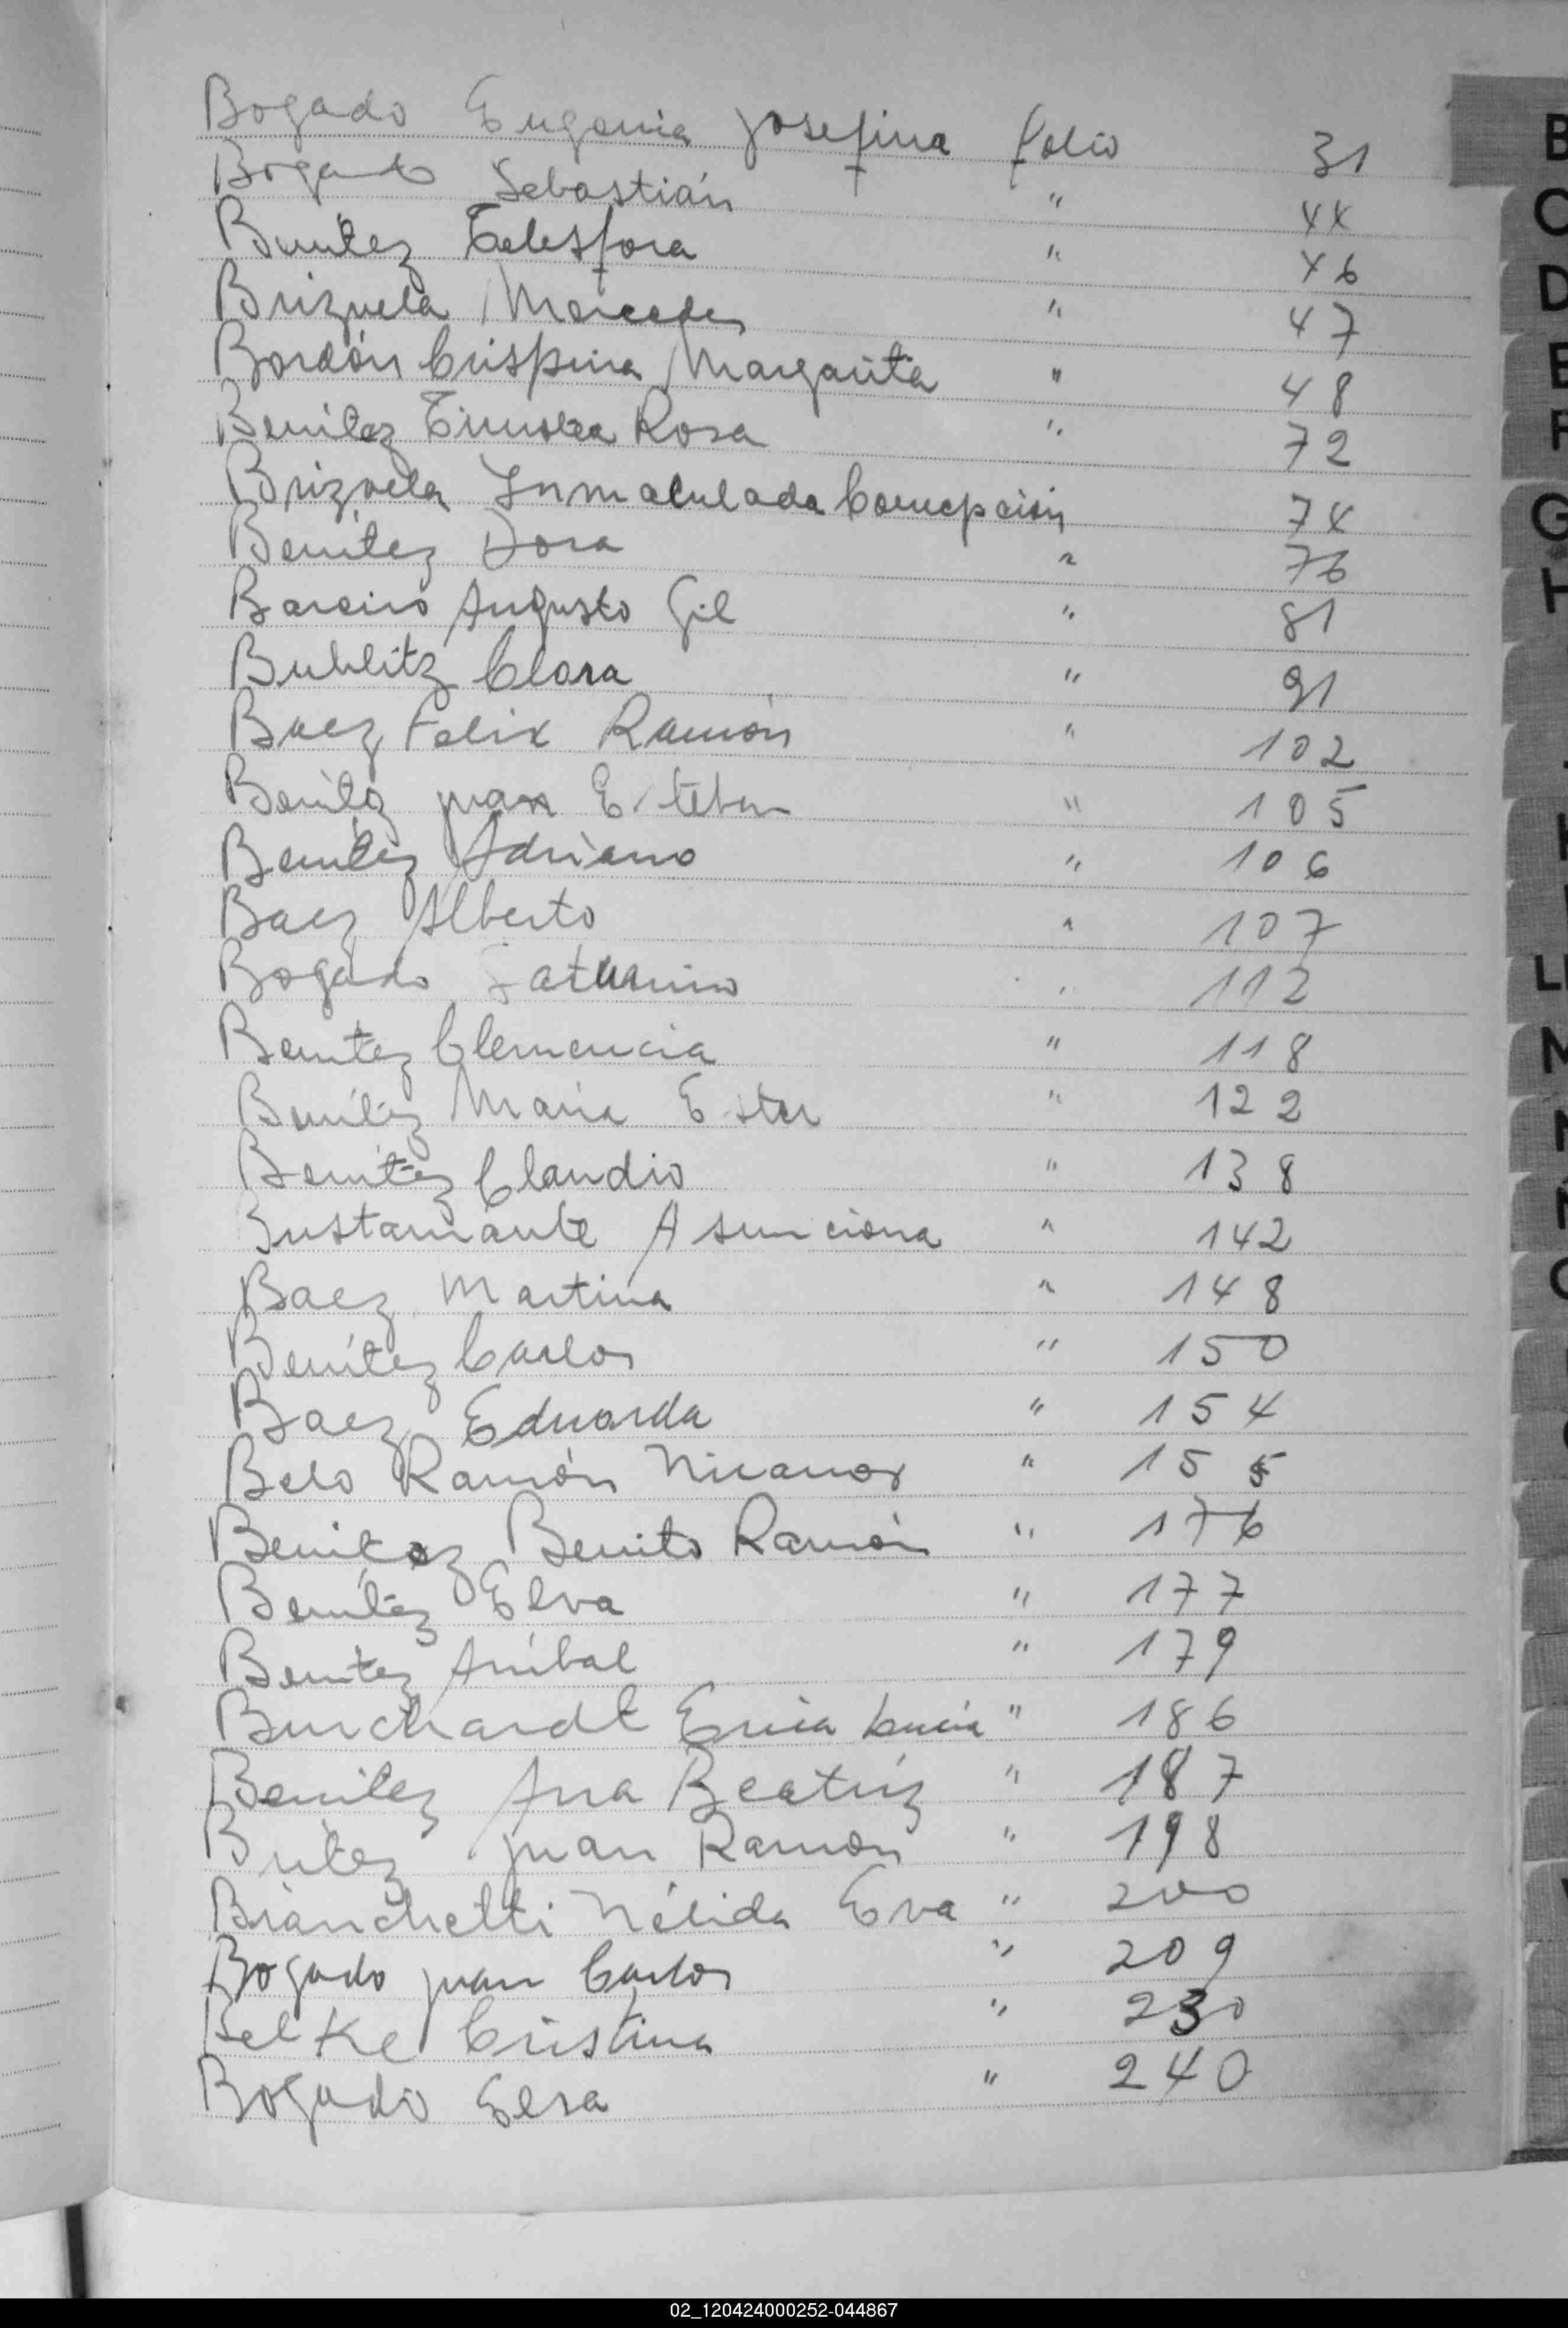 Bogado Eugenia Josefina folio 31
Bogado Sebastián " 44
Benítez Telesfora " 46
Brizuela Mercedes " 47
Bordón Crispina Margarita " 48
Benítez Timotea Rosa " 72
Brizuela Inmaculada Concepción 74
Benítez Dora " 76
Bareiro Augusto Gil " 81
Bublitz Clara " 91
Baez Felix Ramón " 102
Benítez Juan Esteban " 105
Benítez Adriano " 106
Baez Alberto " 107
Bogado Saturnino " 112
Benítez Clemencia " 118
Benítez María Ester " 122
Benítez Claudio " 138
Bustamante Asunciona " 142
Baez Martina " 148
Benítez Carlos " 150
Baez Eduarda " 154
Belo Ramón Nicanor " 155
Benitez Benito Ramón " 176
Benítez Elva " 177
Benítez Aníbal " 179
Burchardt Erica Lucía " 186
Benitez Ana Beatríz " 187
Britez Juan Ramón " 198
Bianchetti Nélida Eva " 200
Bogado Juan Carlos " 209
Belke Cristina " 230
Bogado Elsa " 240
B
C
D
E
F
G
H
K
LL
M
N
02_120424000252-044867